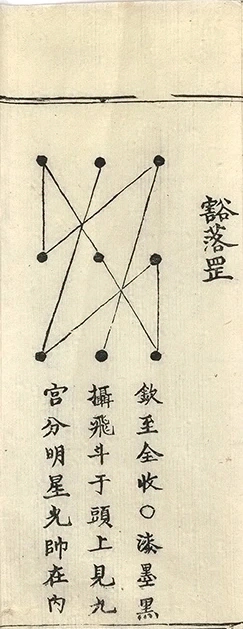 豁落罡
欽至全收〇漆墨黑
攝飛斗于頭上見九
宮分明星光帥在內